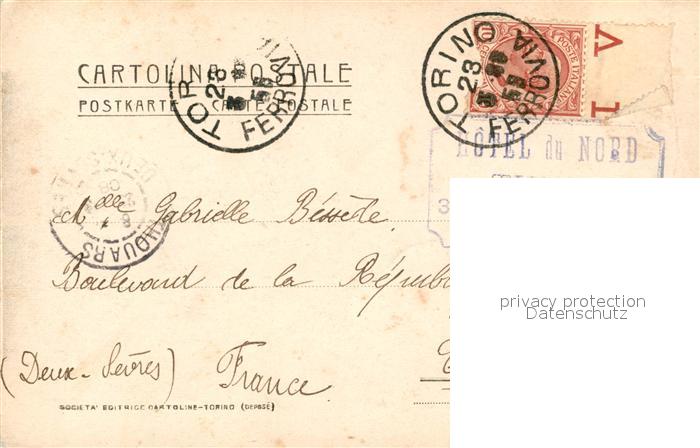 CARTOLINA POSTALE
POSTKARTE CARTE POSTALE
TORINO
23
FERROVIA
TORINO
23
FERROVIA
I V
POSTE ITALIANE
HÔTEL du NORD
THOUARS
Melle Gabrielle Bessète.
Boulevard de la Répub
(Deux-Sèvres) France
privacy protection
Datenschutz
SOCIETA' EDITRICE CARTOLINE-TORINO (DEPOSÉ)